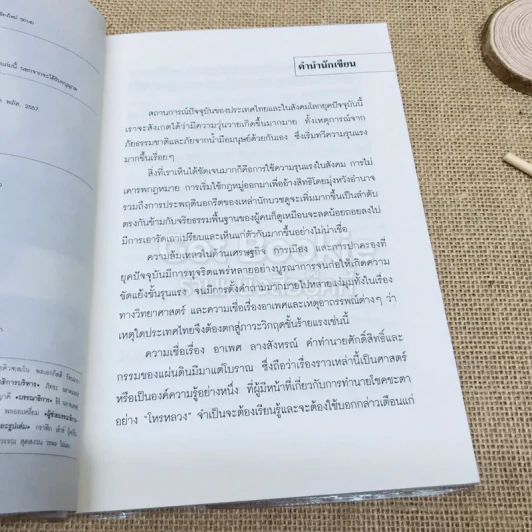 คำนำนักเขียน
สถานการณ์ปัจจุบันของประเทศไทยและในสังคมโลกยุคปัจจุบันนี้
เราจะสังเกตได้ว่ามีความวุ่นวายเกิดขึ้นมากมาย ทั้งเหตุการณ์จาก
ภัยธรรมชาติและภัยจากน้ำมือมนุษย์ด้วยกันเอง ซึ่งเริ่มทวีความรุนแรง
มากขึ้นเรื่อยๆ
สิ่งที่เราเห็นได้ชัดเจนมากก็คือการใช้ความรุนแรงในสังคม การไม่
เคารพกฎหมาย การเริ่มใช้กฎหมู่ออกมาเพื่ออ้างสิทธิโดยมุ่งหวังอำนาจ
รวมถึงการประพฤตินอกรีตของเหล่านักบวชดูจะเพิ่มมากขึ้นเป็นลำดับ
ตรงกันข้ามกับจริยธรรมพื้นฐานของผู้คนก็ดูเหมือนจะลดน้อยถอยลงไป
มีการเอารัดเอาเปรียบและเห็นแก่ตัวกันมากขึ้นอย่างไม่น่าเชื่อ
ความล้มเหลวในด้านเศรษฐกิจ การเมือง และการปกครองที่
ยุคปัจจุบันมีการทุจริตแพร่หลายอย่างบูรณาการจนก่อให้เกิดความ
ขัดแย้งขั้นรุนแรง จนมีการตั้งคำถามมากมายไปหลายแง่มุมทั้งในเรื่อง
ทางวิทยาศาสตร์ และความเชื่อเรื่องอาเพศและเหตุอาถรรพณ์ต่างๆ ว่า
เหตุใดประเทศไทยจึงต้องตกสู่ภาวะวิกฤตขั้นร้ายแรงเช่นนี้
ความเชื่อเรื่อง อาเพศ ลางสังหรณ์ คำทำนายศักดิ์สิทธิ์และ
กรรมของแผ่นดินมีมาแต่โบราณ ซึ่งถือว่าเรื่องราวเหล่านี้เป็นศาสตร์
หรือเป็นองค์ความรู้อย่างหนึ่ง ที่ผู้มีหน้าที่เกี่ยวกับการทำนายโชคชะตา
อย่าง "โหรหลวง" จำเป็นจะต้องเรียนรู้และจะต้องใช้บอกกล่าวเตือนแก่